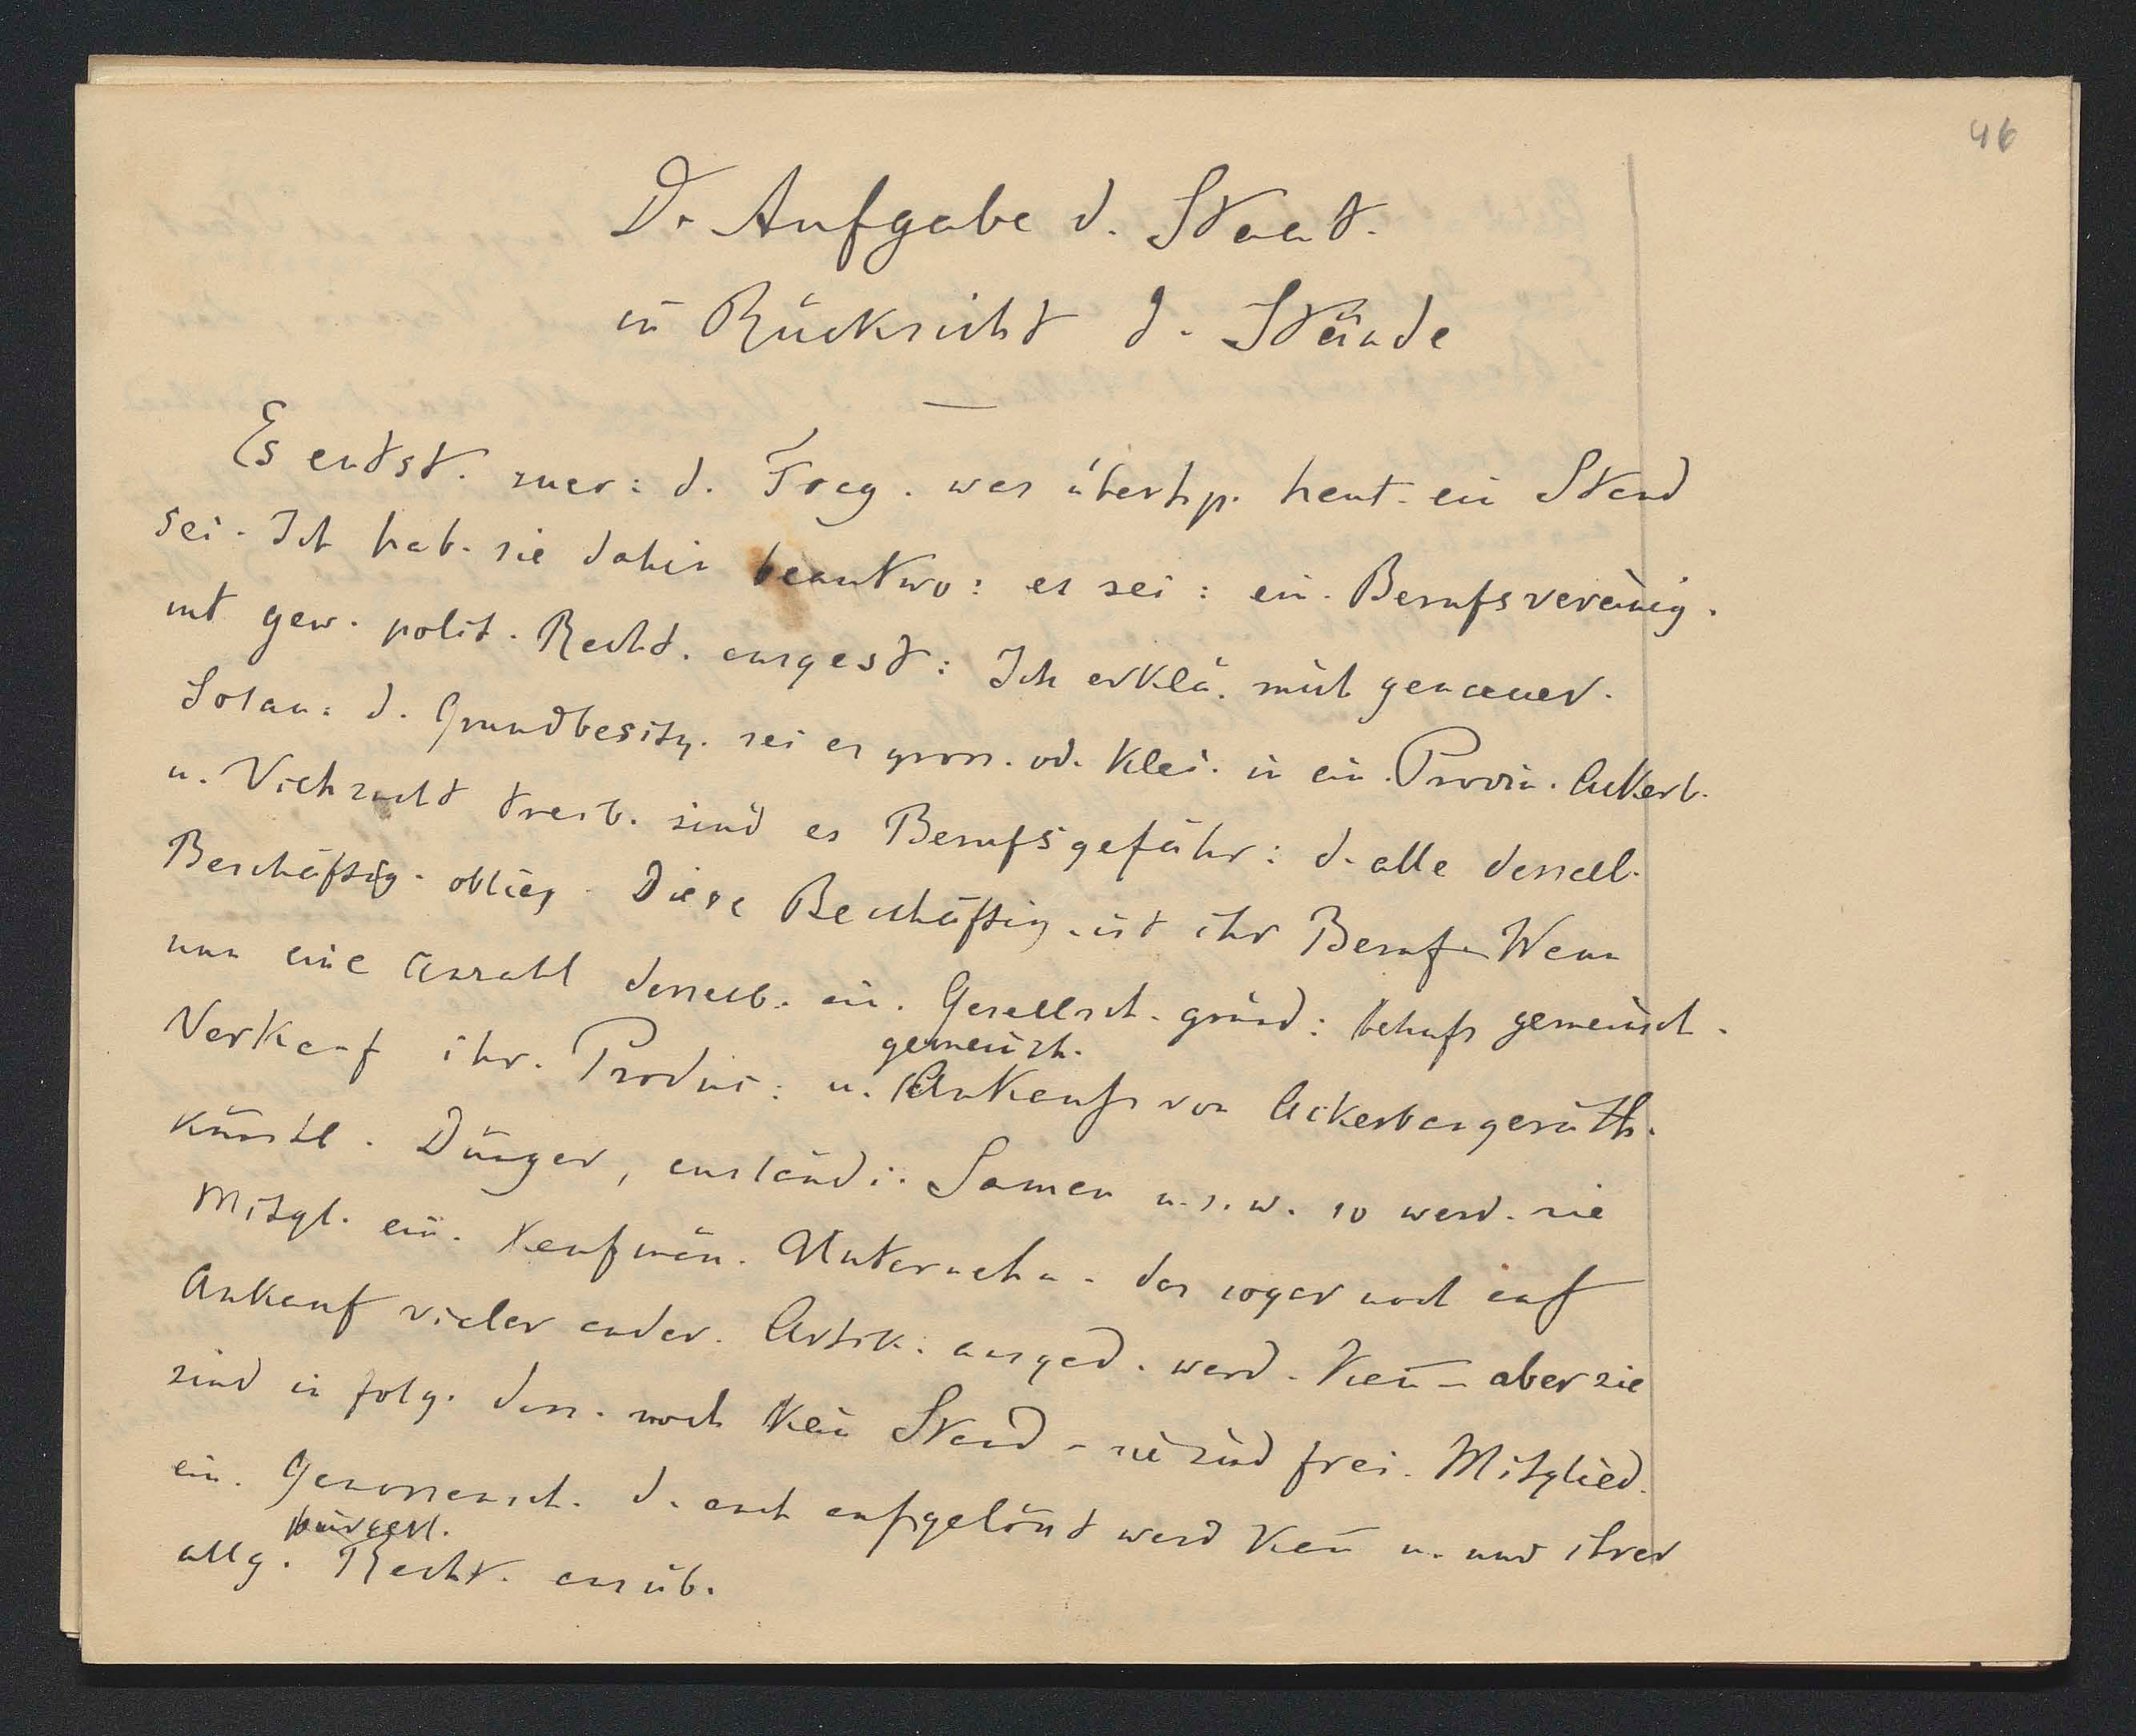 46
D. Aufgabe d. Staat.
in Rücksicht d. Stände
Es entst. zuer: d. Frag. was überhp. heut. ein Stand
sei. Ich hab. sie dahin beantwo: es sei: ein. Berufsvereinig.
mt gew. polit. Recht. ausgest: Ich erklä. mich genauer.
Solan: d. Grundbesitz. sei er gross. od. klei. in ein. Provin. Ackerb.
u. Viehzucht treib. sind es Berufsgefähr: d. alle dersselb.
Beschäftig. oblieg. Diese Beschäftig. ist ihr Beruf. Wenn
nun eine Anzahl derselb. ein. Gesellsch. gründ: behufs gemeinsch.
Verkauf ihr. Produc: u. gemeinsch. Ankaufs von Ackerbaugeräth.
künstl. Dünger, ausländi. Samen u.s.w. so werd. sie
Mitgl. ein. kaufmän. Unternehm. das sogar noch auf
Ankauf vieler ander. Artik: ausged. werd. kañ – aber sie
sind in folg. dess. noch kein Stand – sie sind frei. Mitglied.
ein. Genossensch. d. auch aufgelöst werd kañ u. nur ihrer
allg. bürgerl. Recht. ausüb.